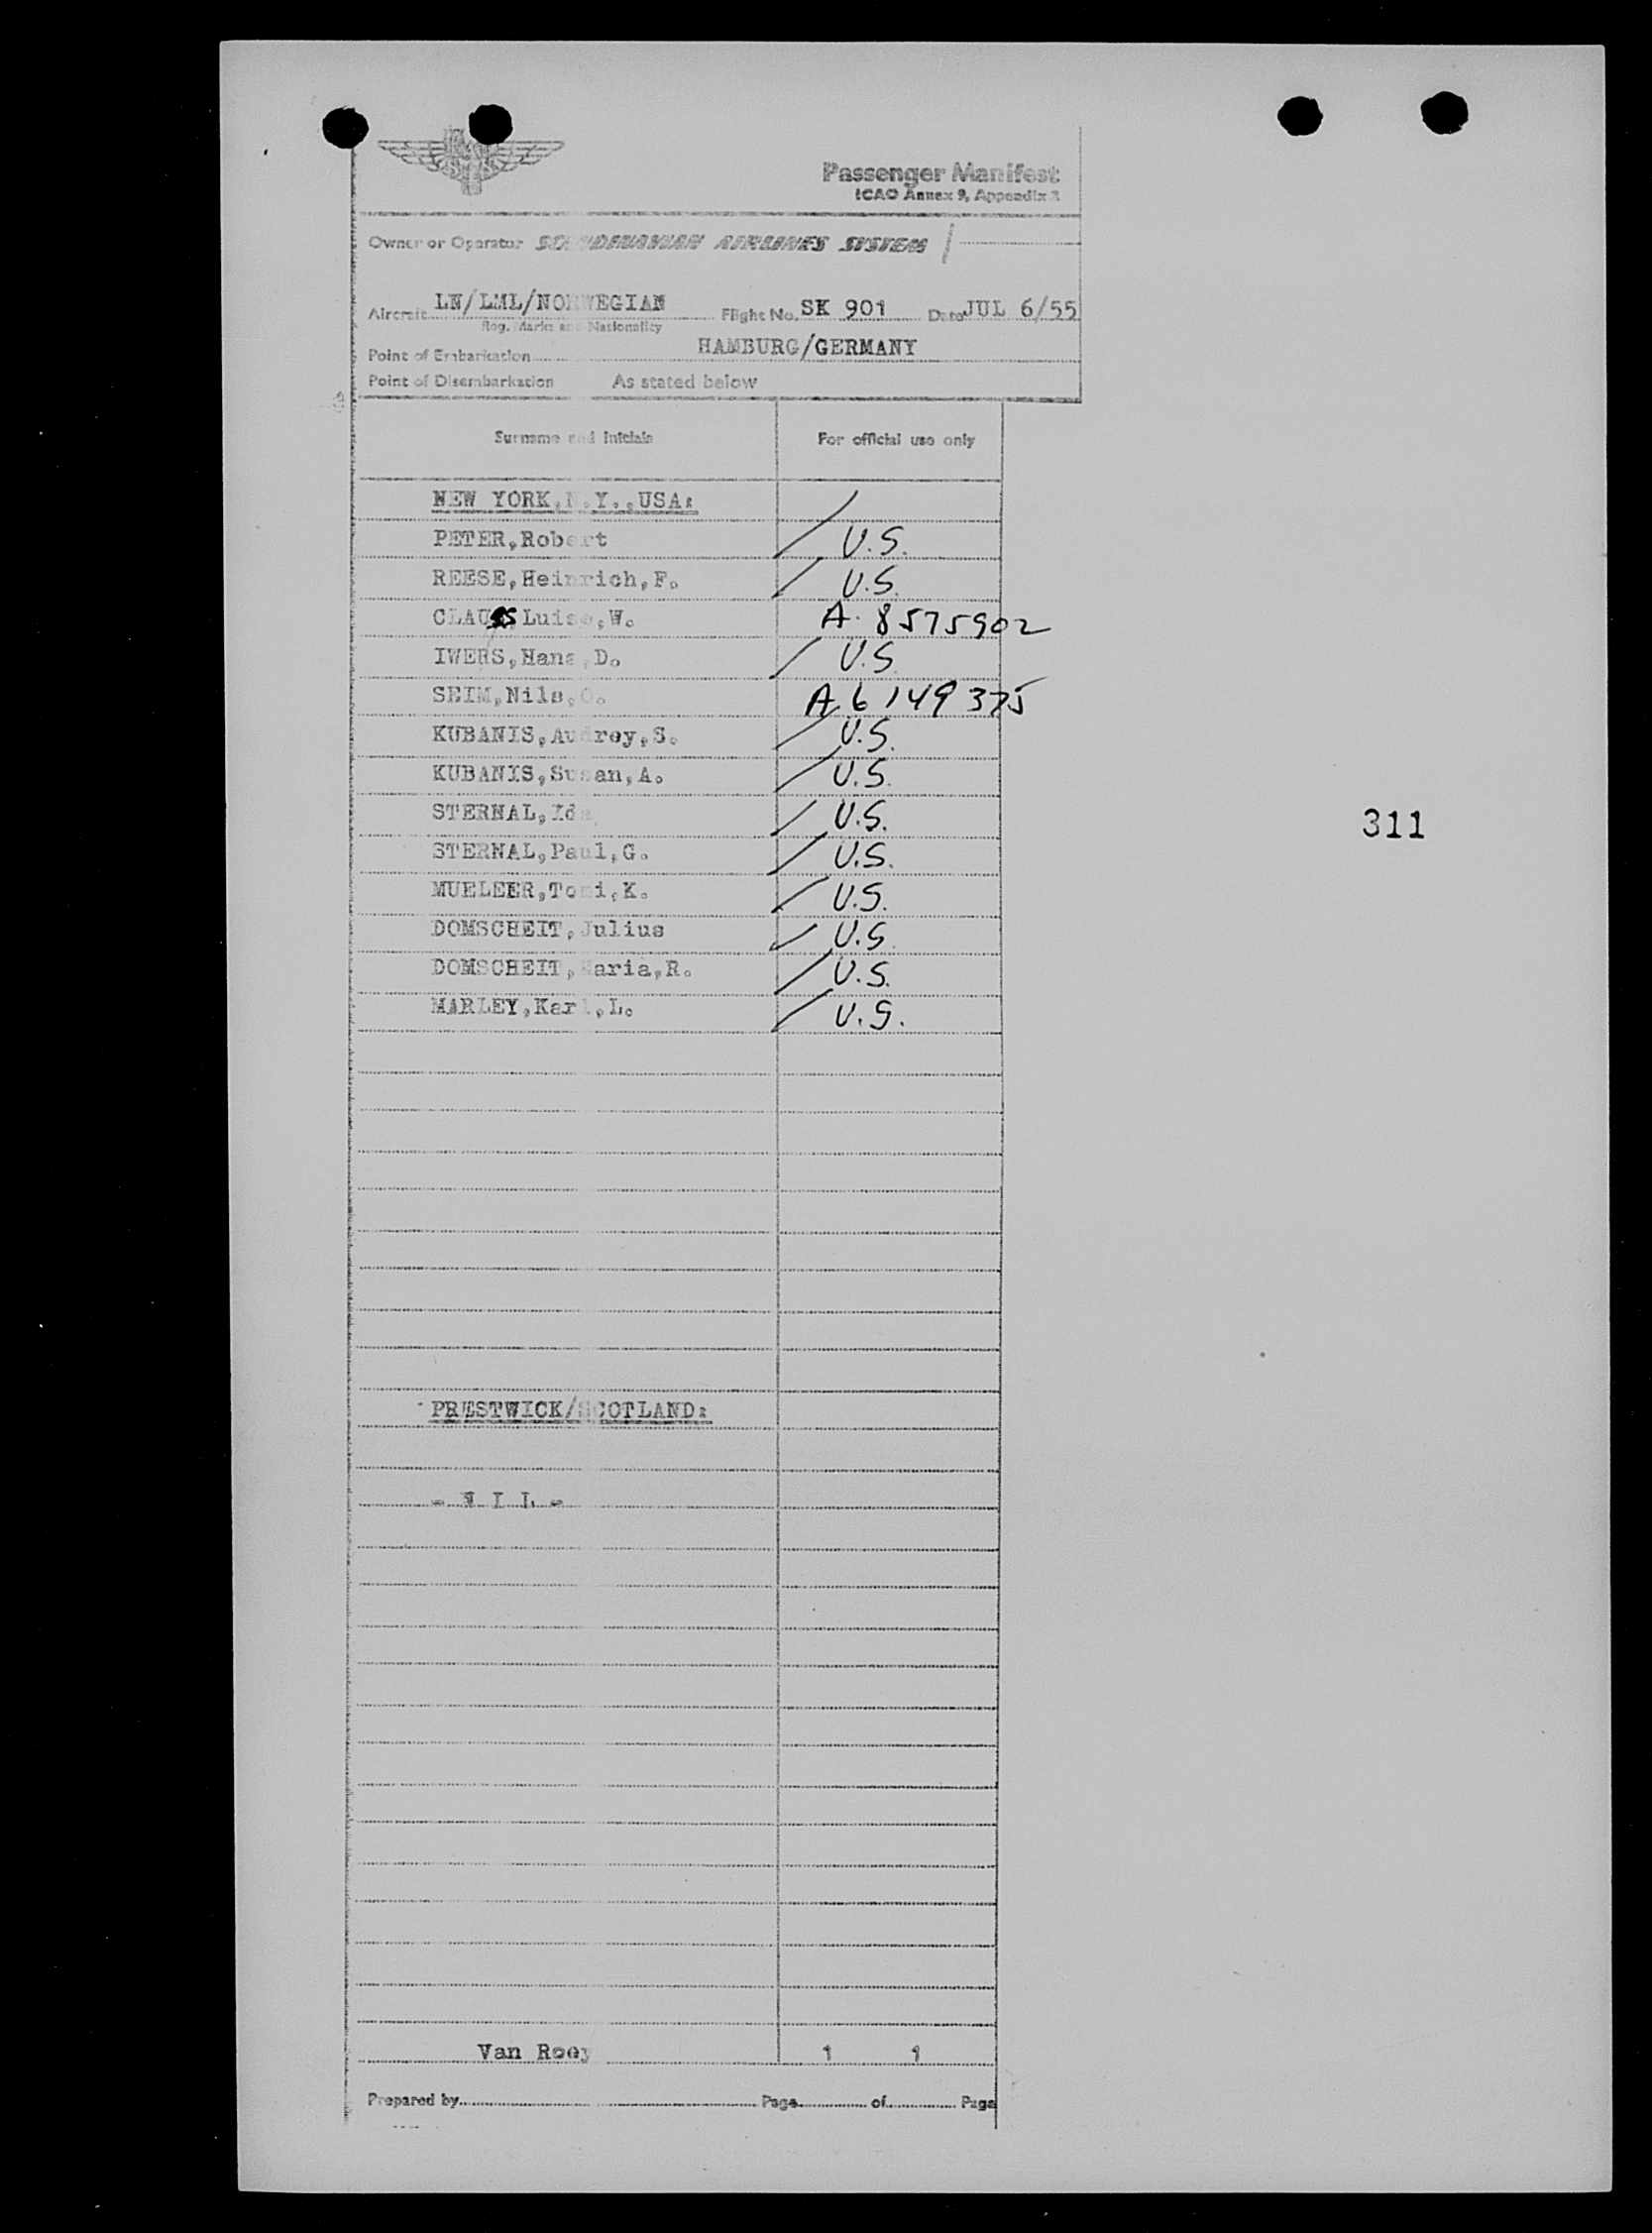 Passenger Manifest
ICAO Annex 9, Appendix 3
Owner or Operator SCANDINAVIAN AIRLINES SYSTEM
Aircraft LN/LML/NORWEGIAN Flight No. SK 901 Date JUL 6/55
Reg. Marks and Nationality
Point of Embarkation HAMBURG/GERMANY
Point of Disembarkation As stated below
Surname and Initials For official use only
NEW YORK,N.Y.,USA:
PETER,Robert U.S.
REESE,Heinrich,F. U.S.
CLAUSS Luise,W. A. 8575902
IWERS,Hans,D. U.S.
SEIM,Nils,O. A6149375
KUBANIS,Audrey,S. U.S.
KUBANIS,Susan,A. U.S.
STERNAL,Ida U.S.
STERNAL,Paul,G. U.S.
311
MUELEER,Toni,K. U.S.
DOMSCHEIT,Julius U.S.
DOMSCHEIT,Maria,R. U.S.
MARLEY,Karl,L. U.S.
PRESTWICK/SCOTLAND:
- N I L -
Van Rooy 1 1
Prepared by Page of Page